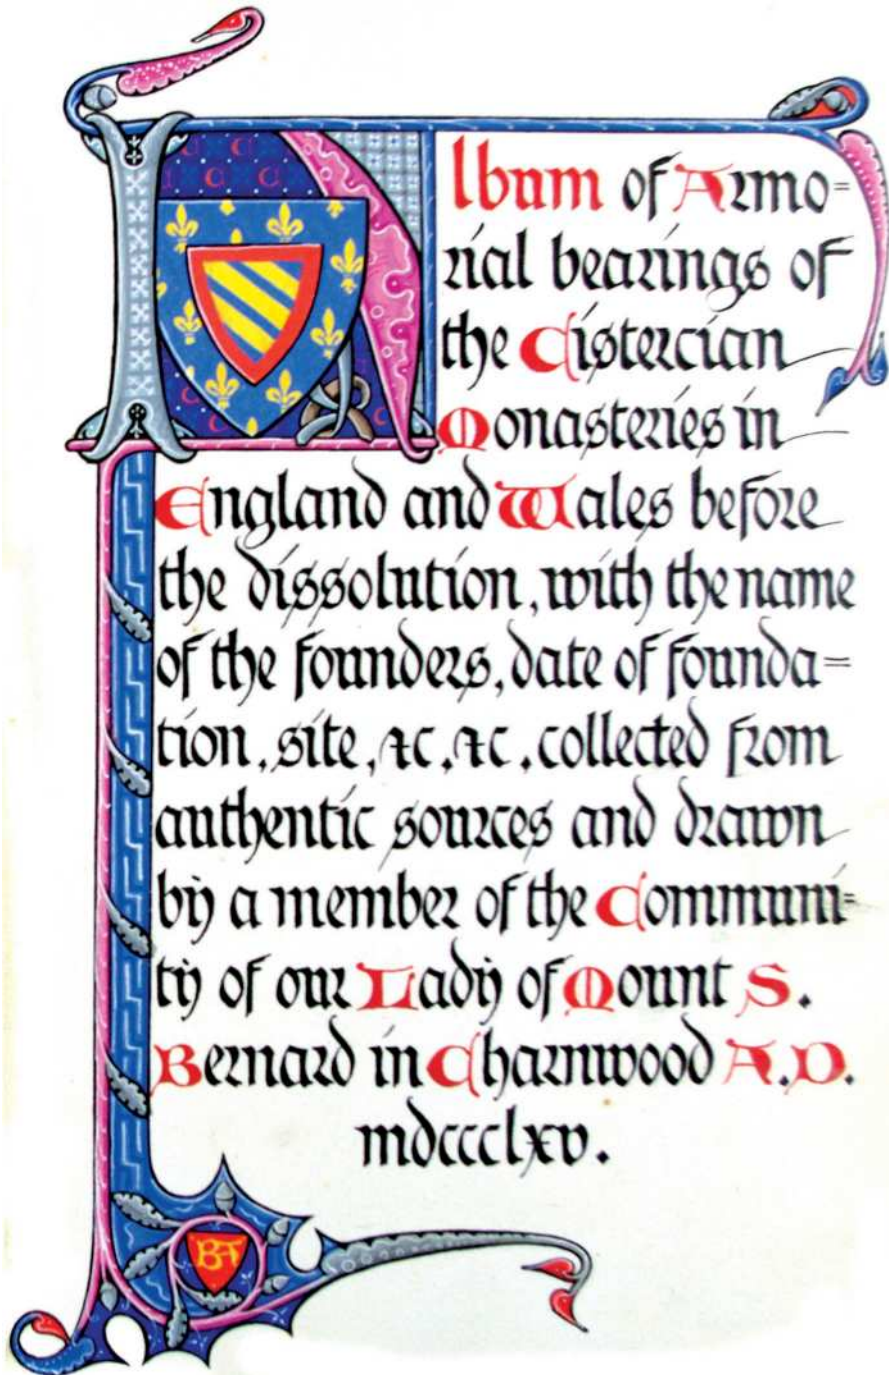 Album of Armo=
rial bearings of
the Cistercian
Monasteries in
England and Wales before
the dissolution, with the name
of the founders, date of founda=
tion, site, &c, &c, collected from
authentic sources and drawn
by a member of the Communi=
ty of our Lady of Mount S.
Bernard in Charnwood A.D.
mdccclxv.
BA